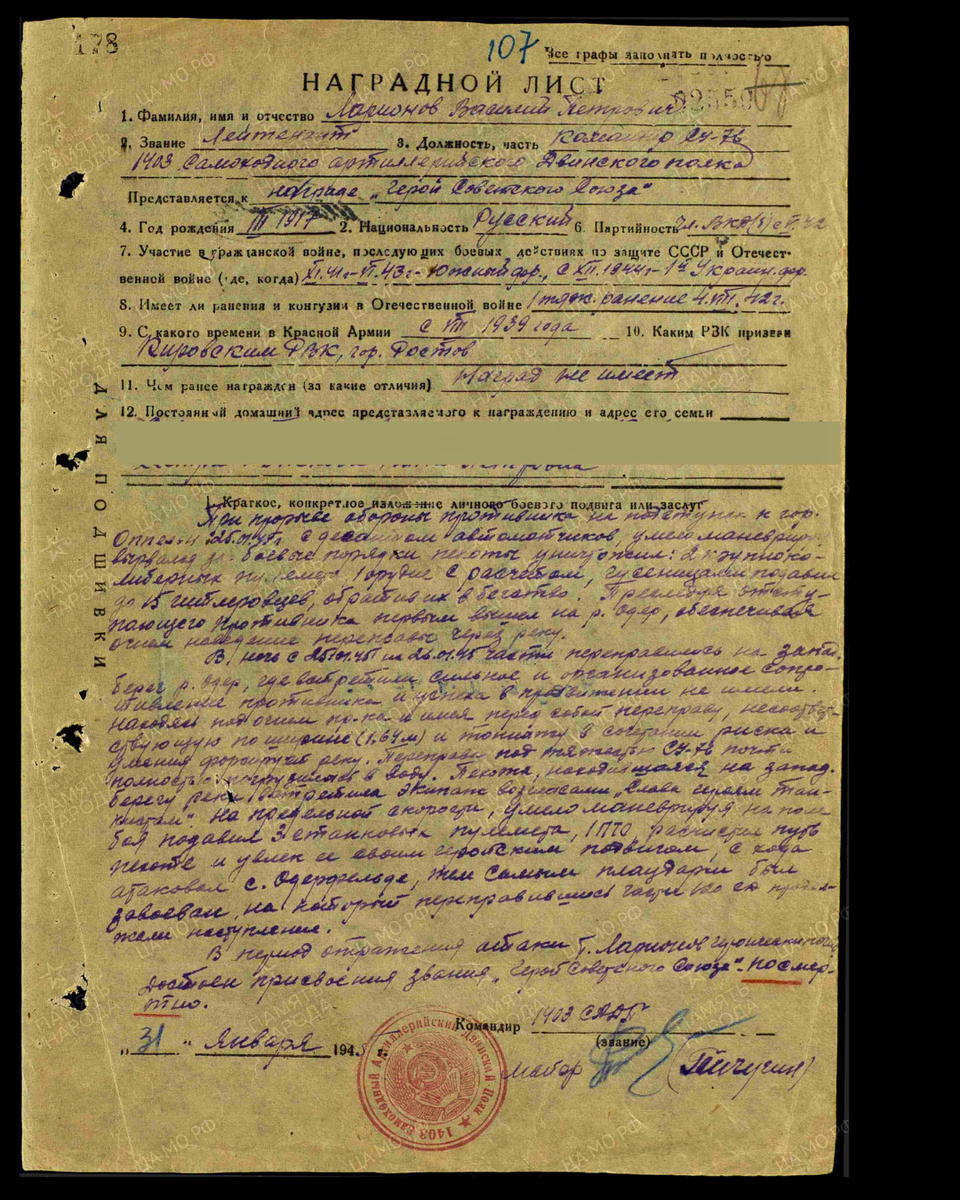 178
107 Все графы заполнять полностью
НАГРАДНОЙ ЛИСТ
1. Фамилия, имя и отчество Ларионов Василий Петрович
2. Звание Лейтенант 3. Должность, часть командир СУ-76
1403 Самоходного артиллерийского Двинского полка
Представляется к награде „Герой Советского Союза"
4. Год рождения III 1917 2. Национальность Русский 6. Партийность Чл. ВКП(б) с
7. Участие в гражданской войне, последующих боевых действиях по защите СССР и Отечест-
венной войне (где, когда) XI.41г-VI.43г- Южный фр., с XII.1944г- 1й Украин. фр.
8. Имеет ли ранения и контузии в Отечественной войне 1 тяж. ранение 4.VII.42г.
9. С какого времени в Красной Армии с VIII 1939 года 10. Каким РВК призван
Кировским РВК, гор. Ростов
11. Чем ранее награжден (за какие отличия) Наград не имеет
12. Постоянный домашний адрес представляемого к награждению и адрес его семьи
Петровна
ДЛЯ ПОДШИВКИ
I. Краткое, конкретное изложение личного боевого подвига или заслуг
При прорыве обороны противника на подступах к гор.
Оппельн с десантом автоматчиков, умело маневрируя
вырвался до боевые порядки пехоты уничтожил: 2 крупнока-
либерных пулемета, 1 орудие с расчетом, гусеницами подавил
до 15 гитлеровцев, обратив их в бегство. Преследуя отсту-
пающего противника первым вышел на р. Одер, обеспечивая
огнем наведение переправы через реку.
В ночь с 25.01.45 на 26.01.45 части переправились на запад.
берег р. Одер, где встретили сильное и организованное сопро-
тивление противника и успеха в продвижении не имели.
Находясь под огнем пр-ка и имея перед собой переправу, несоответ-
ствующую по ширине (1,64 м) и тоннажу в сочетании риска и
умения форсирует реку. Переправа под тяжестью СУ-76 почти
полностью погрузилась в воду. Пехота, находившаяся на запад.
берегу реки встретила экипаж возгласами „Слава героям тан-
кистам" На предельной скорости, умело маневрируя на поле
боя подавил 3 станковых пулемета, 1 ПТО, расчистил путь
пехоте и увлек ее своим геройским подвигом, с хода
атаковал с. Одерфельде, тем самым плацдарм был
завоеван, на который переправившись части продол-
жали наступление.
В период отражения атаки т. Ларионов героически погиб
Достоен присвоения звания „Герой Советского Союза"- посмер-
тно.
Командир 1403 САДП
(звание)
„31" Января 1945 г.
майор (Пичугин)
1403 Самоходный Артиллерийский Двинский Полк
ПАМЯТЬ НАРОДА
ЦАМО.РФ